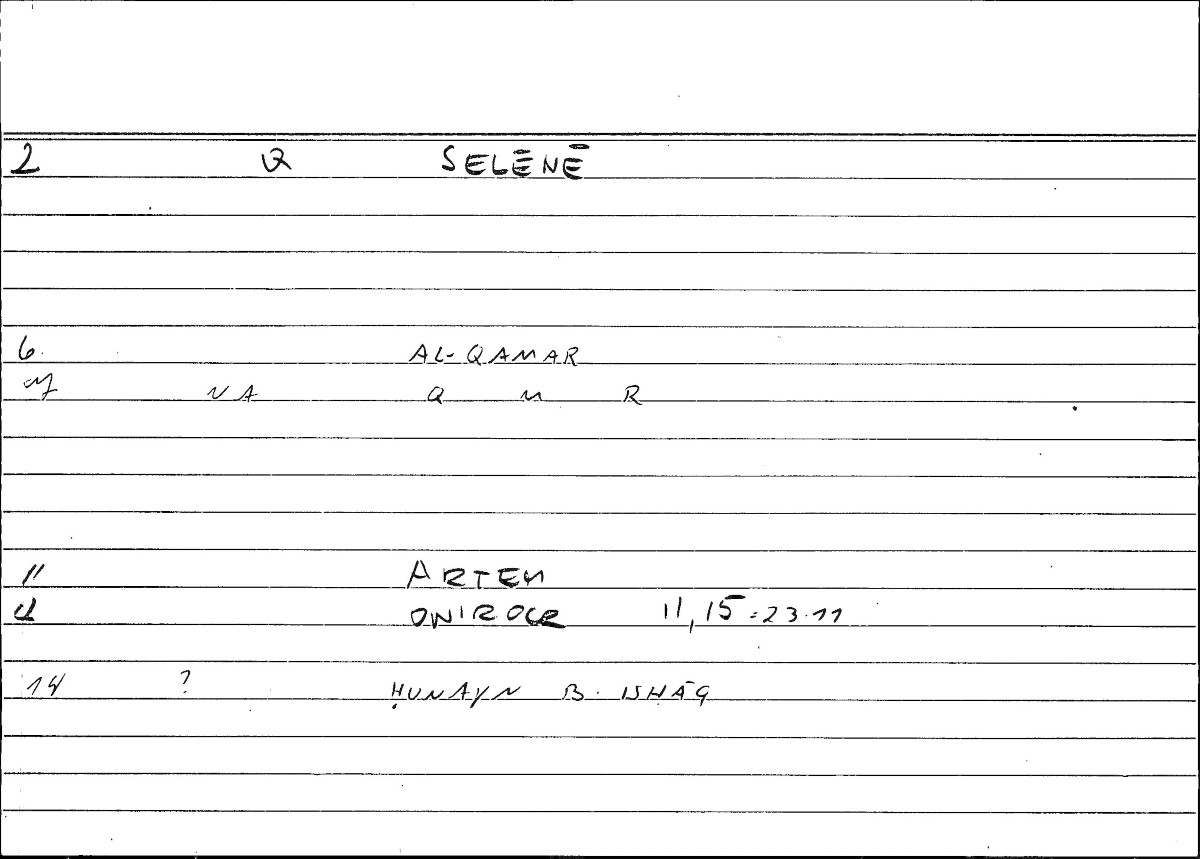 2 Q SELĒNĒ
6. AL-QAMAR
NA Q M R
11 ARTEM
d ONIROCR 11,15 = 23.11
14 ? ḤUNAYN B. ISḤĀQ